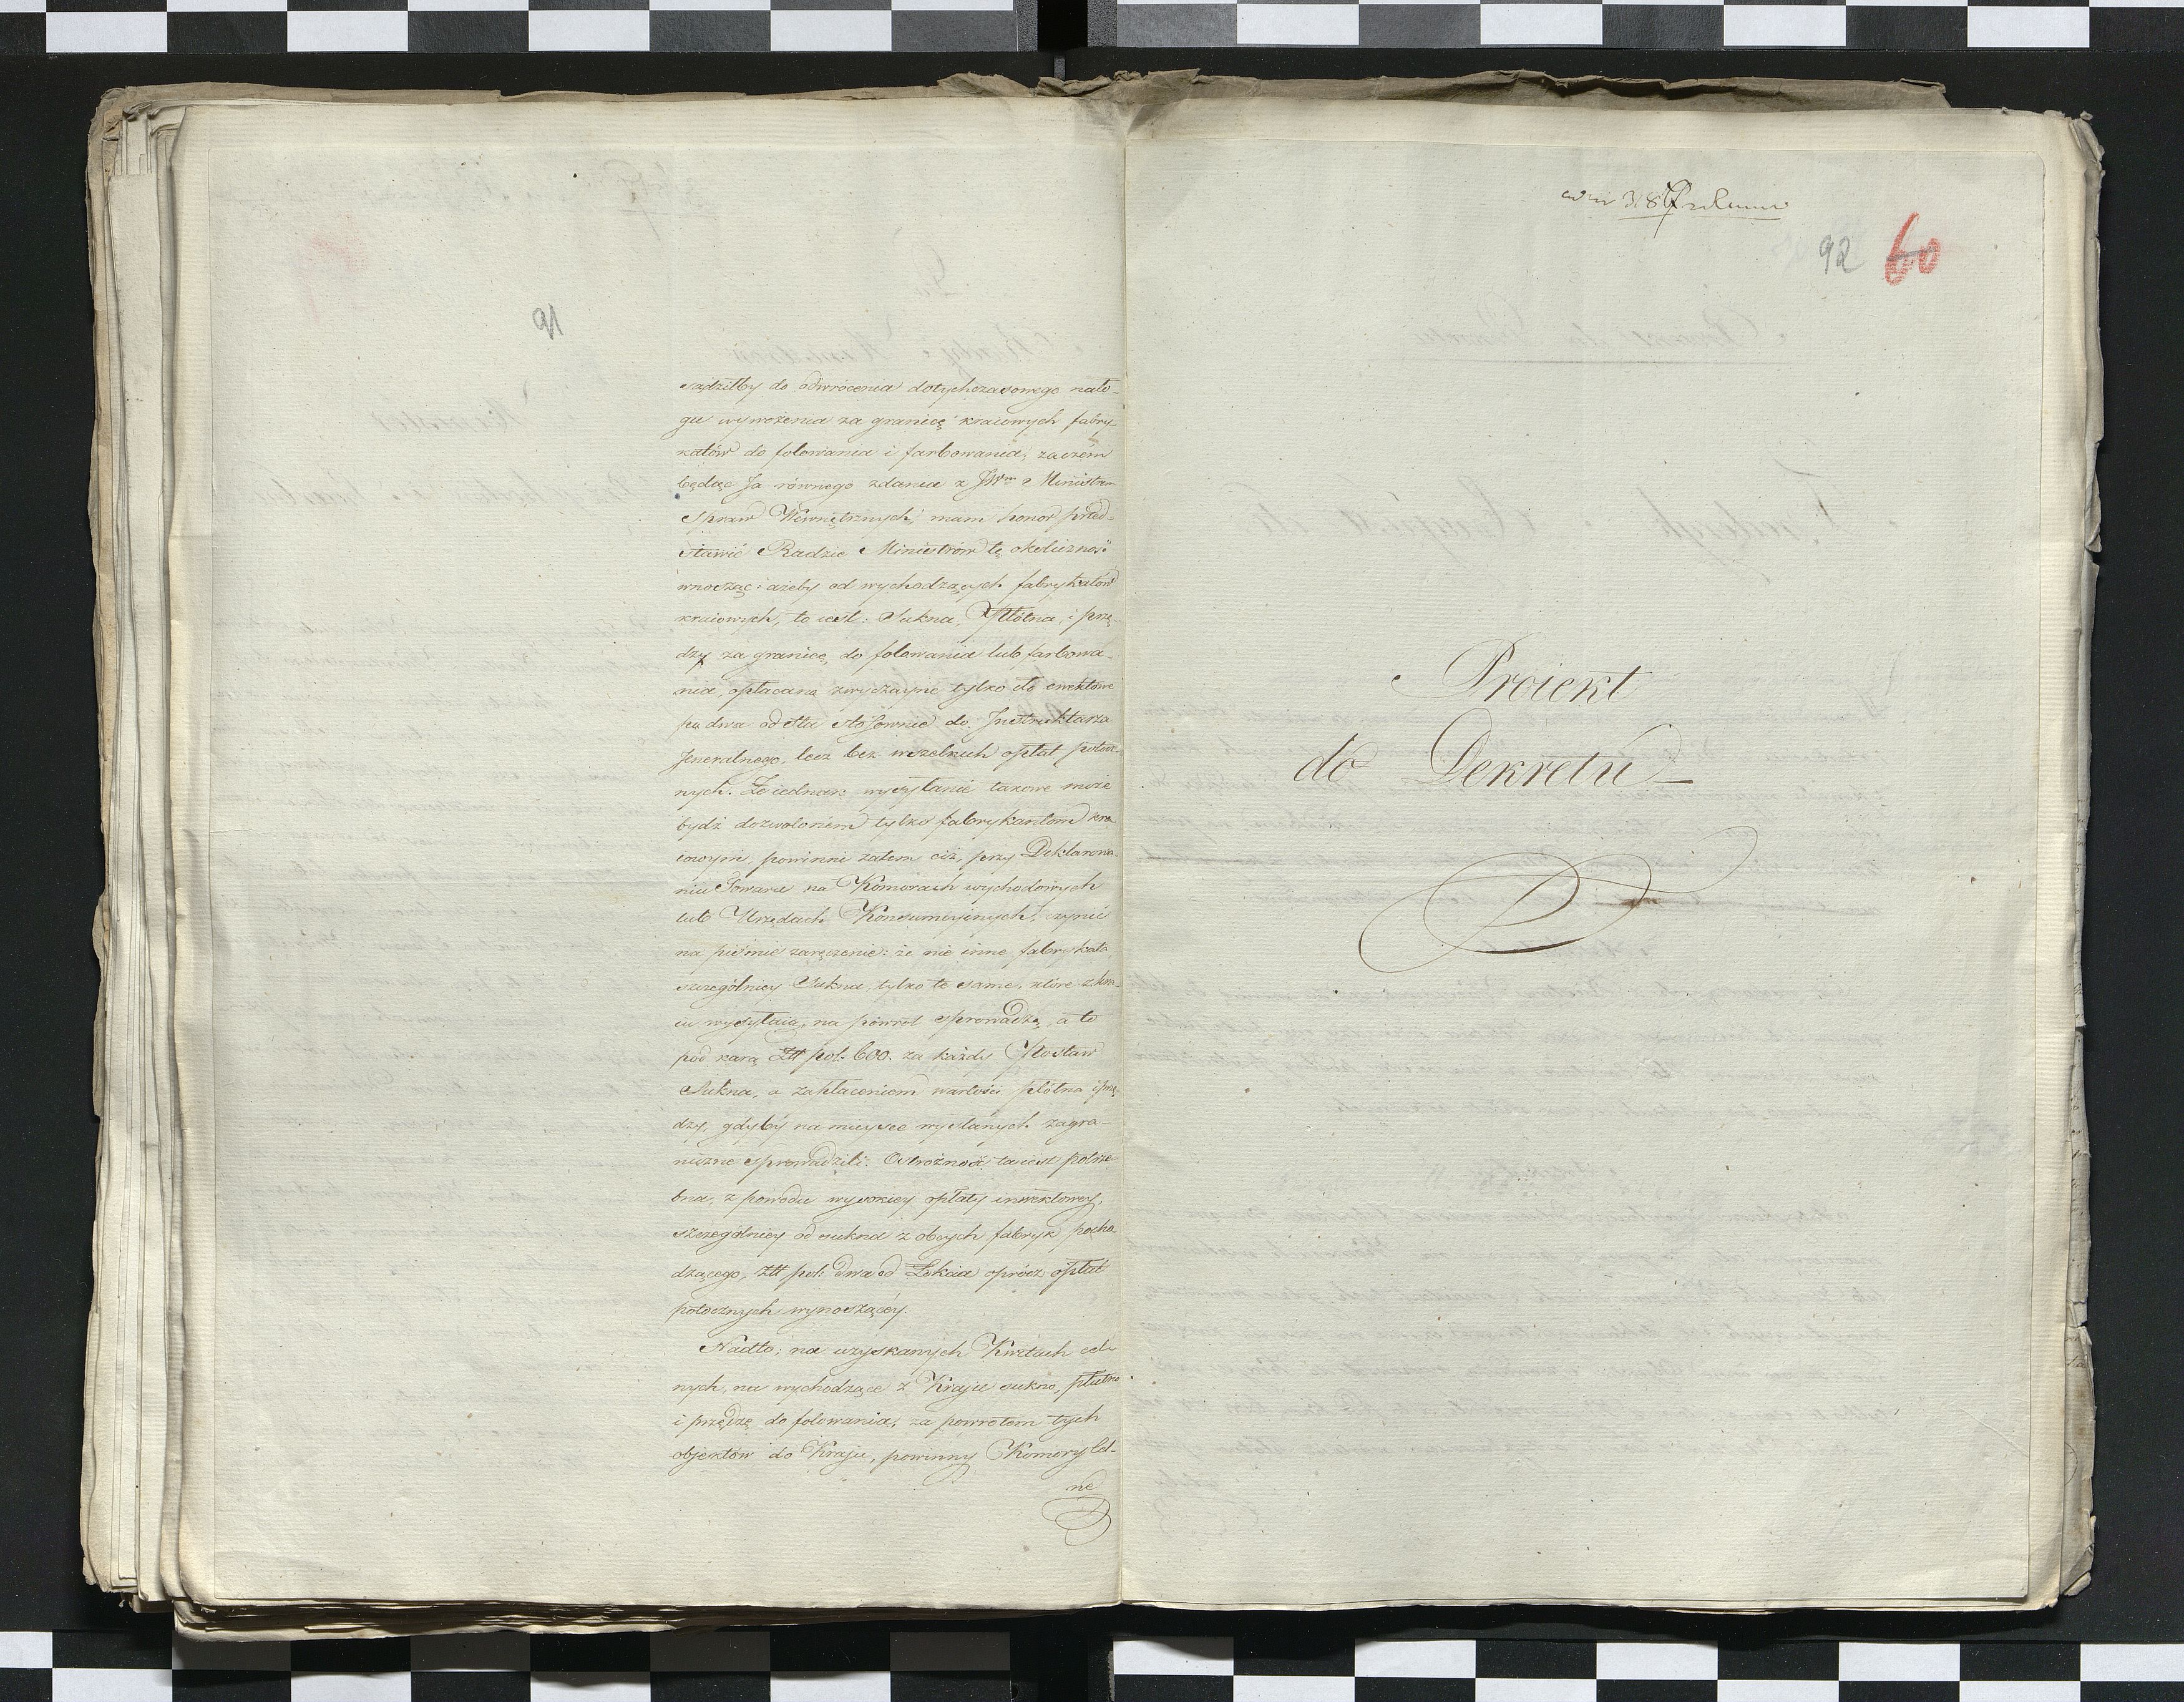 91
sądziłby do odwrócenia dotychczasowego nało-
gu wywożenia za granicę kraiowych fabry-
katów do folowania i farbowania; zaczém
będąc Ja równego zdania z JWm Ministrem
Spraw Wewnętrznych, mam honor przed-
stawić Radzie Ministrów tę okoliczność
wnosząc: ażeby od wychodzących fabrykatów
kraiowych, to iest: Sukna, Płótna, i przę-
dzy za granicę, do folowania lub farbowa-
nia, opłacano zwyczayne tylko cło ewektowe
po dwa od sta stosownie do Jnstruktarza
Jeneralnego, lecz bez wszelkich opłat potocz-
nych. Że iednak wysyłanie takowe może
bydź dozwolonem tylko fabrykantom kra-
iowym, powinni zatem ciż, przy Deklarowa-
niu Towaru na Komorach wychodowych
lub Urzędach Konsumcyinych, czynić
na piśmie zaręczenie: że nie inne fabrykata
szczególniey Sukna, tylko te same, które z kra-
iu wysyłaią, na powrót sprowadzą, a to
pod karą Złł pol. 600. za każdy Postaw
Sukna, a zapłaceniem wartości płótna i przę-
dzy, gdyby na mieysce wysłanych zagra-
niczne sprowadzili. Ostrożność ta iest potrze-
bna, z powodu wysokiey opłaty inwektowey,
szczególniey od sukna z obcych fabryk pocho-
dzącego, złł pol: dwa od Łokcia oprócz opłat
potocznych wynoszącéy.
Nadto; na uzyskanych Kwitach cel-
nych, na wychodzące z Kraju sukno, płutno
i przędzę do folowania, za powrotem tych
objektów do Kraju, powinny Komory Cel-
ne
92 60
Proiekt
do Dekretu